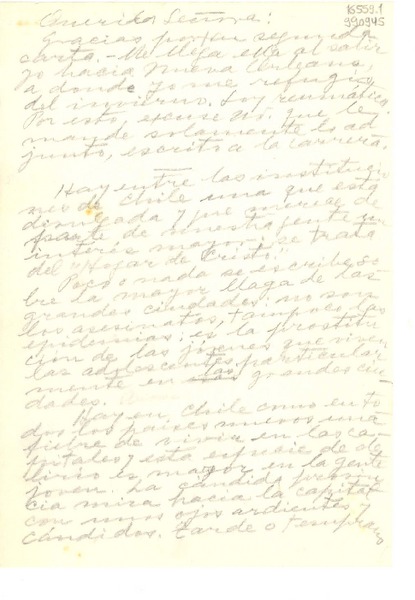 16559.1
990945
Querida Señora:
Gracias por su segunda
carta. - Me llega ella al salir
yo hacia Nueva Orleans,
a donde yo me refugio
del invierno. Soy reumática.
Por esto, excuse Ud. que le
mande solamente lo ad-
junto, escrito a la carrera.
Hay entre las institucio
nes de Chile una que está
divulgada y que merece de
parte de nuestra gente un
interés mayor; se trata
del "Hogar de Cristo".
Poco o nada se escribe so
bre la mayor llaga de las
grandes ciudades: no son
los asesinatos, tampoco las
epidemias: es la prostitu
ción de las jóvenes que viven
las adolescentes particular
mente en las grandes ciu
dades.
Hay en Chile como en to
dos los países nuevos una
fiebre de vivir en las ca-
pitales y esta especie de de
lirio es mayor en la gente
joven. La cándida provin
cia mira hacia la capital
con unos ojos ardientes y
cándidos. Tarde o temprano